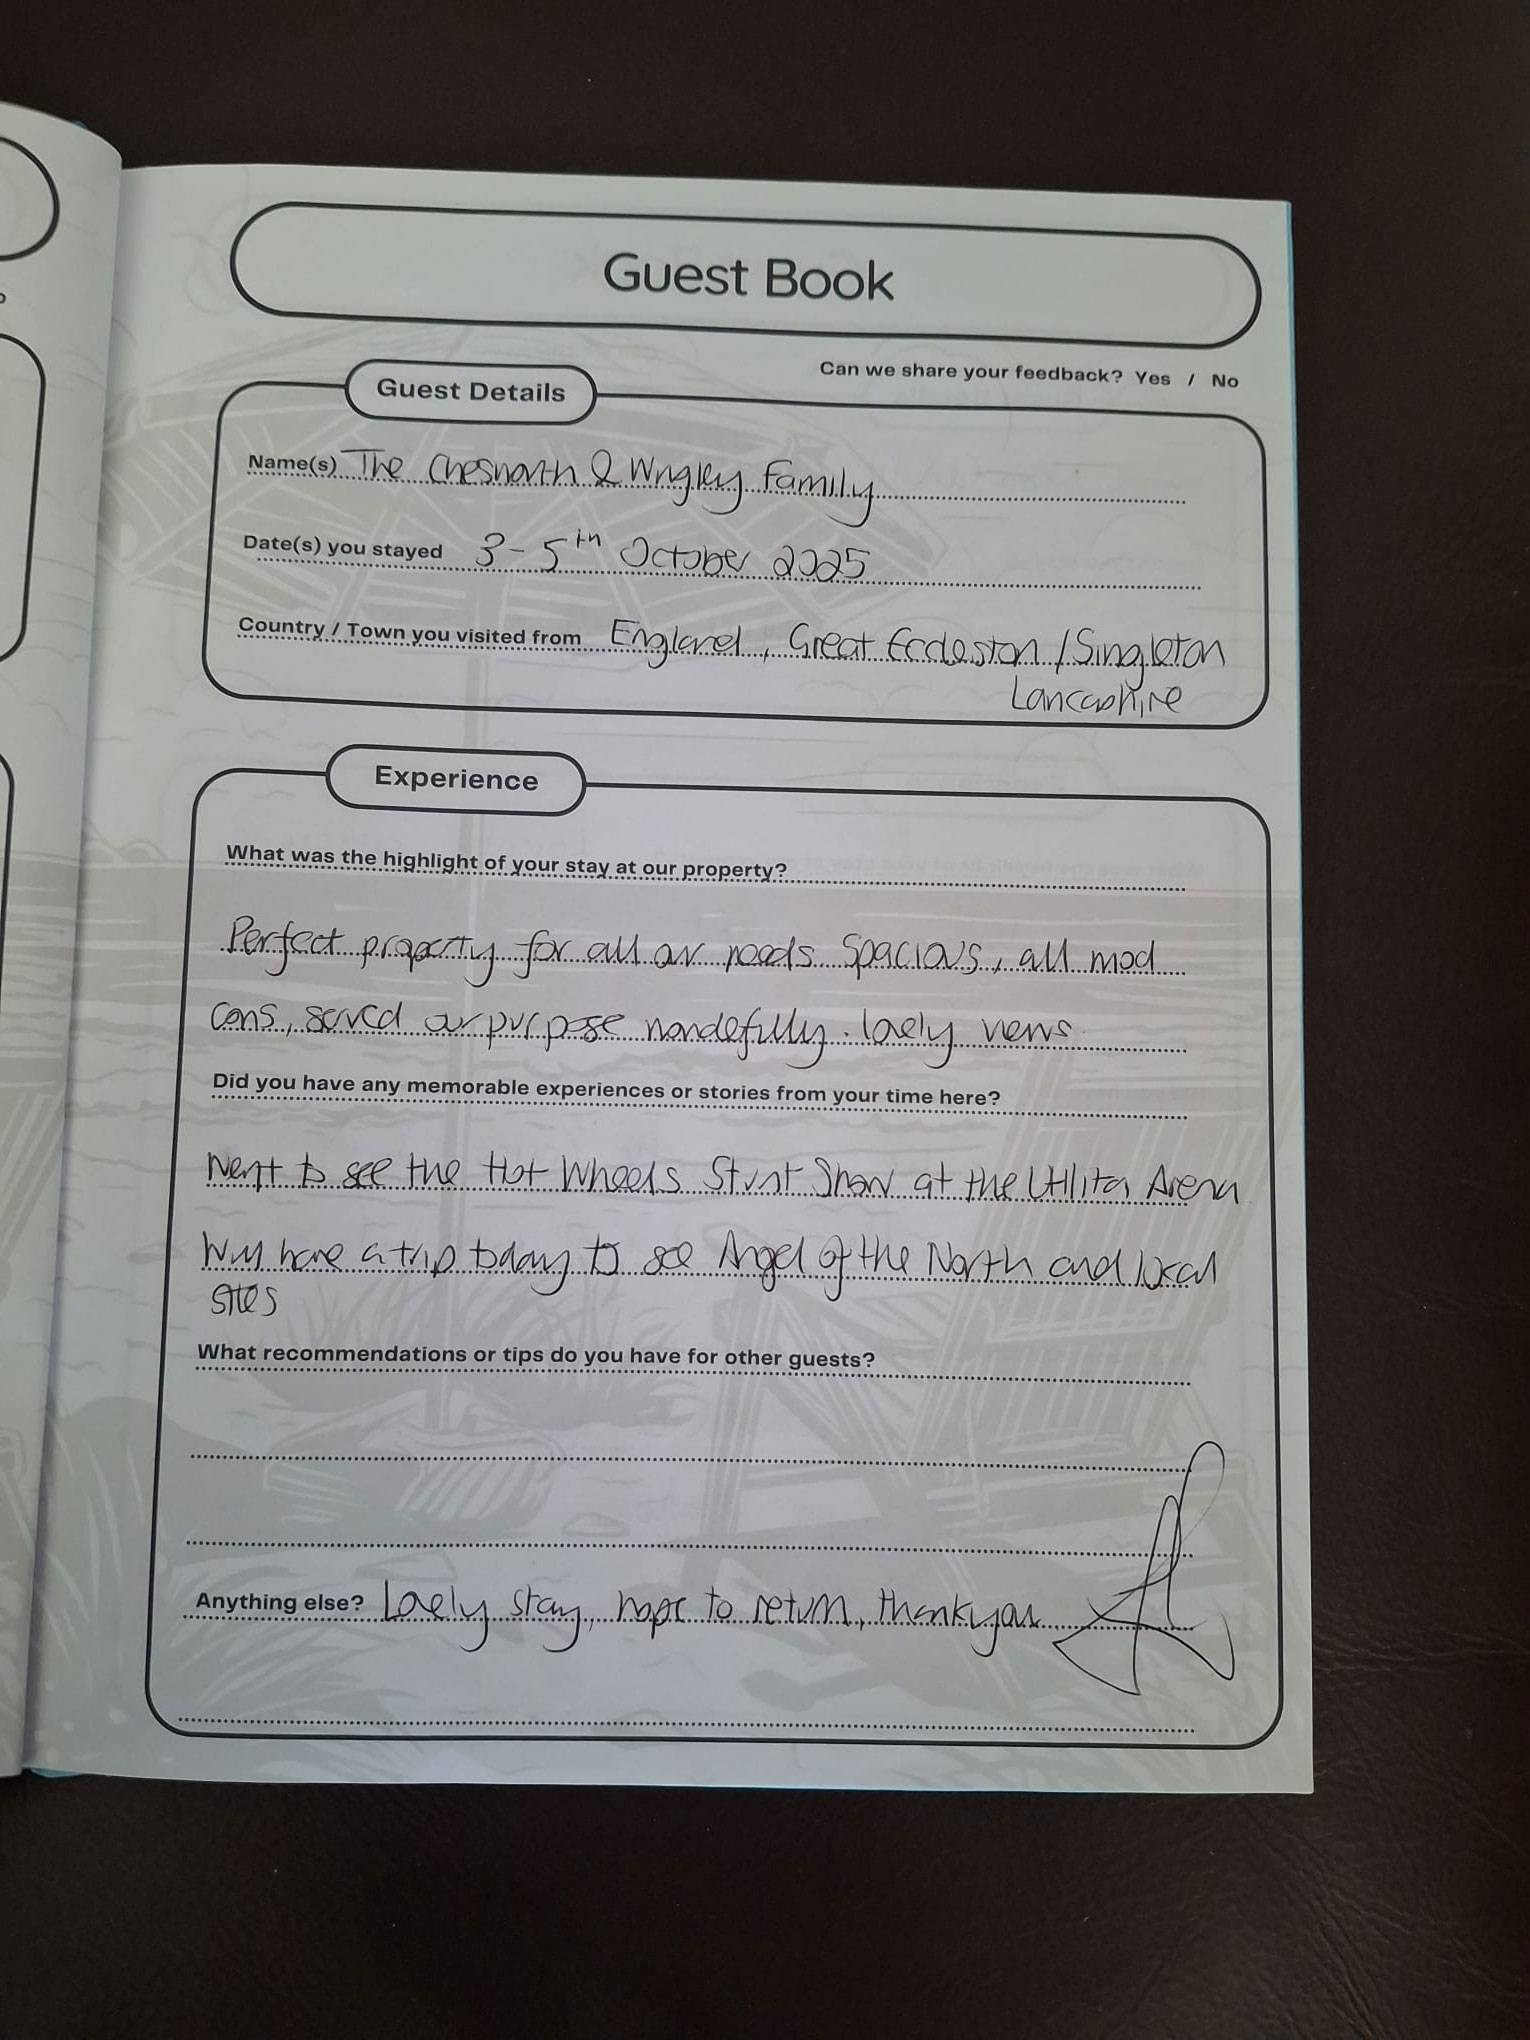 Guest Book
Can we share your feedback? Yes / No
Guest Details
Name(s) The Chesworth & Wrigley Family
Date(s) you stayed 3-5th October 2025
Country / Town you visited from England, Great Eccleston / Singleton
Lancashire
Experience
What was the highlight of your stay at our property?
Perfect property for all our needs. Spacious, all mod
cons, served our purpose wonderfully. lovely views
Did you have any memorable experiences or stories from your time here?
Went to see the Hot Wheels Stunt Show at the Utilita Arena
Will have a trip today to see Angel of the North and local
sites
What recommendations or tips do you have for other guests?
Anything else? Lovely stay, hope to return, thankyou